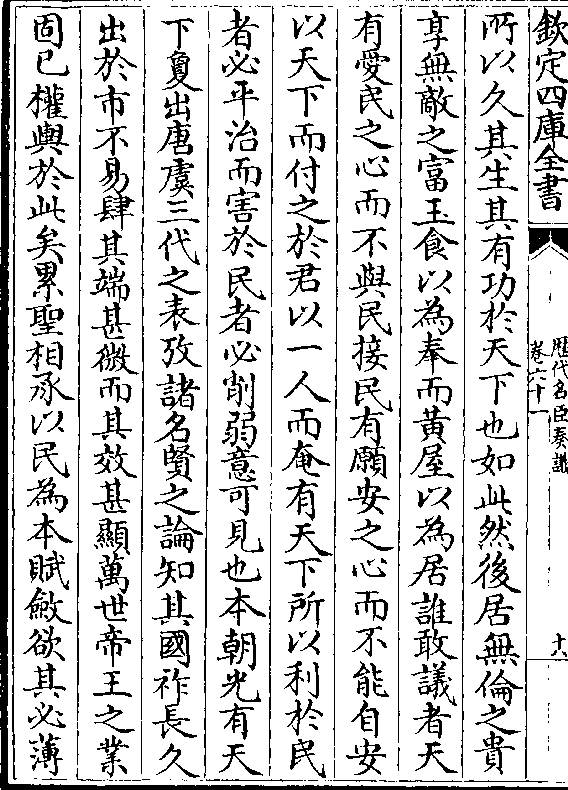 欽定四庫全書
歷代名臣奏議
卷六十一
十八
所以久其生其有功於天下也如此然後居無倫之貴
享無敵之富玉食以為奉而黃屋以為居誰敢議者天
有愛民之心而不與民接民有願安之心而不能自安
以天下而付之於君以一人而奄有天下所以利於民
者必平治而害於民者必削弱意可見也本朝光有天
下夐出唐虞三代之表攷諸名賢之論知其國祚長久
出於市不易肆其端甚微而其效甚顯萬世帝王之業
固已權輿於此矣累聖相承以民為本賦斂欲其必薄